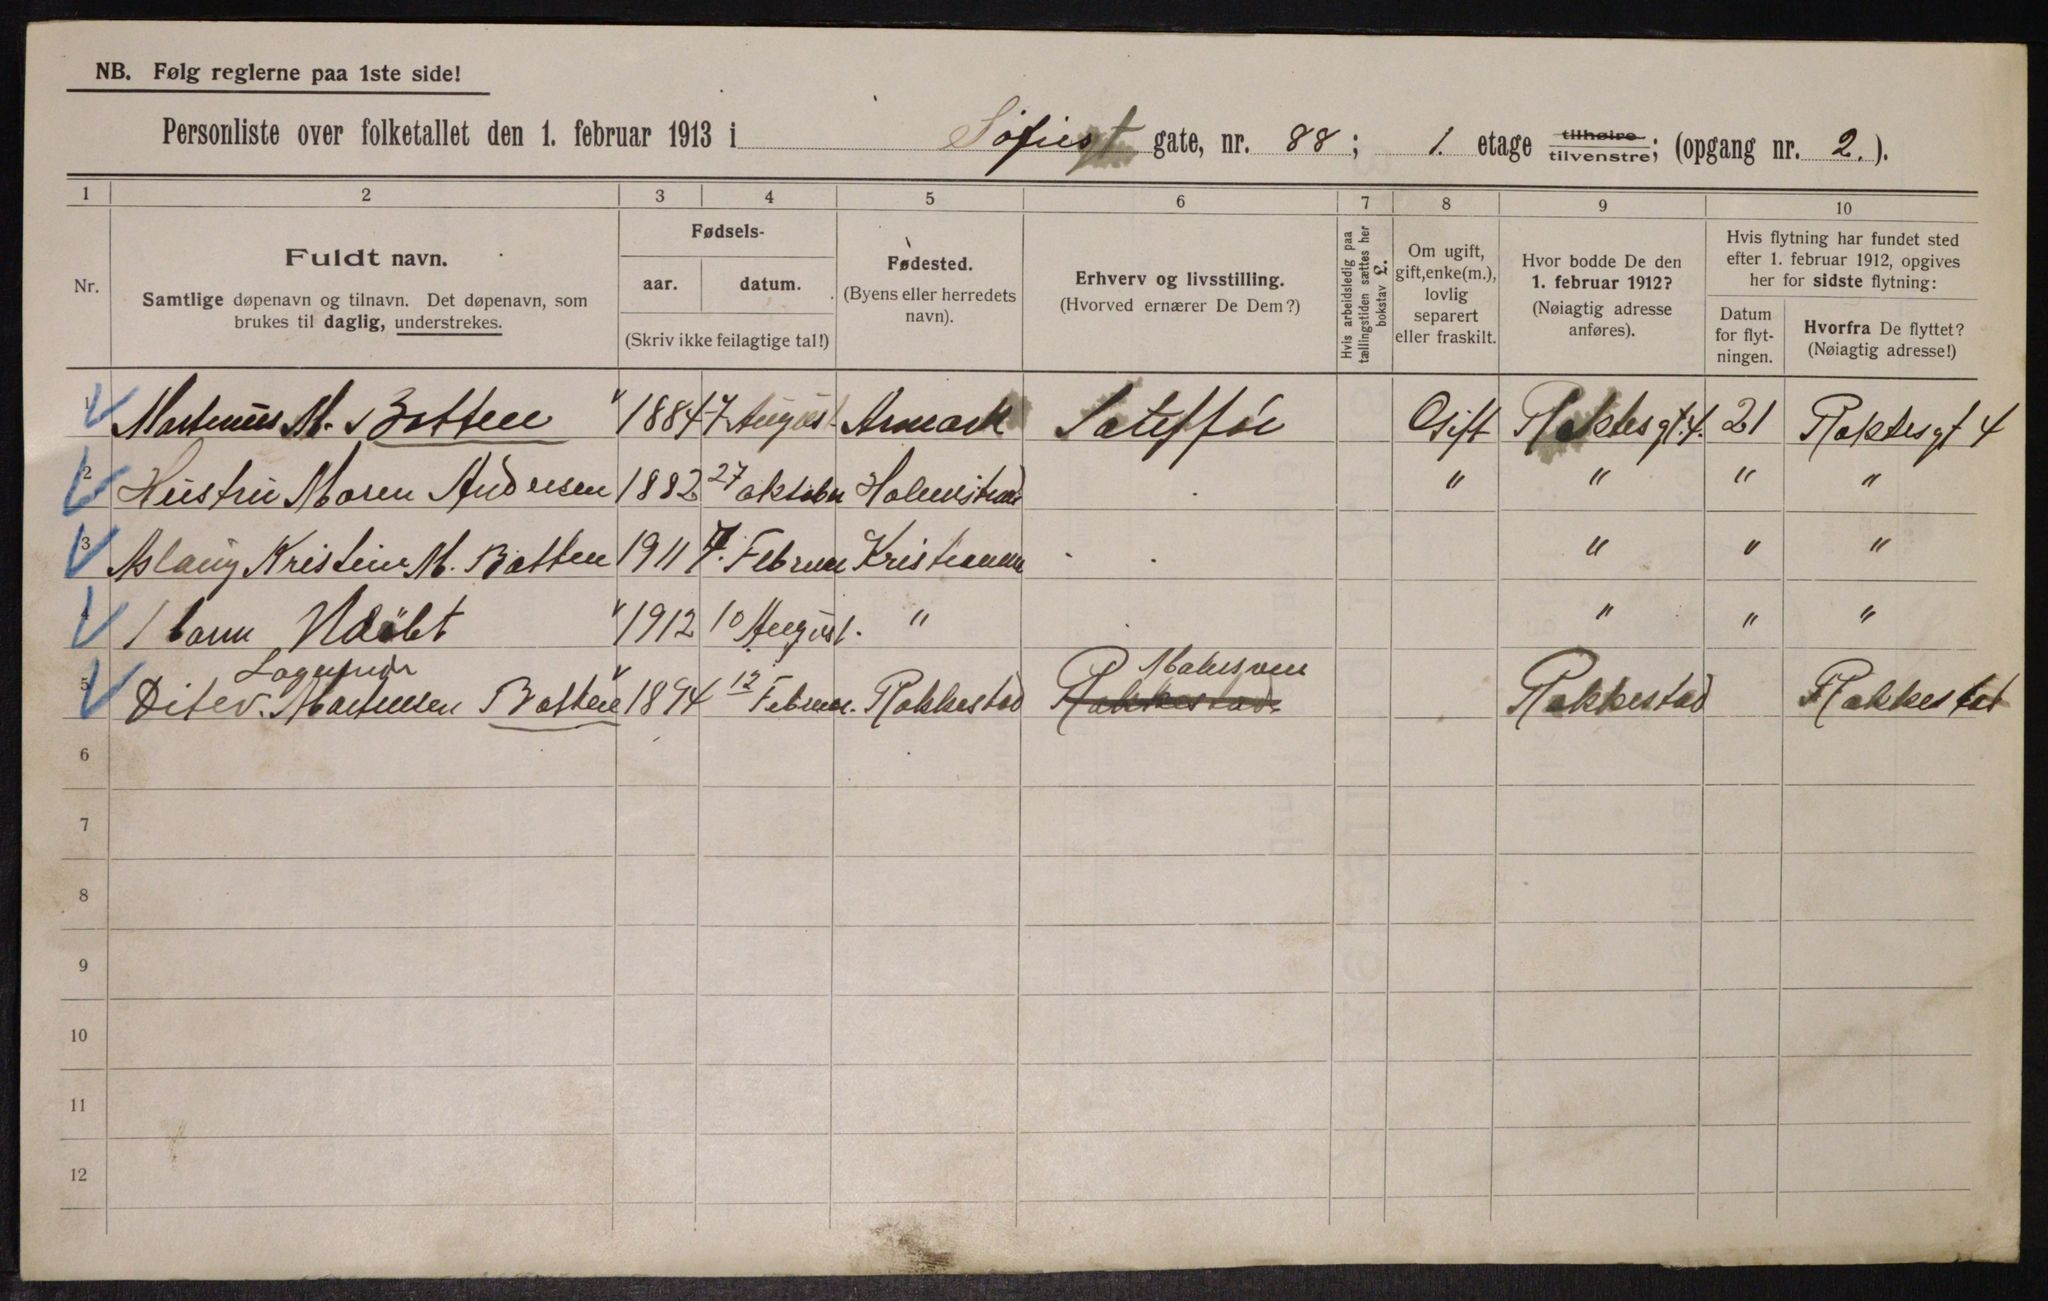 NB. Følg reglerne paa 1ste side!
Personliste over folketallet den 1. februar 1913 i Sofiesgt gate, nr. 88; 1. etage tilhøire tilvenstre; (opgang nr. 2.).
1 2 3 4 5 6 7 8 9 10
Nr.
Fuldt navn.
Samtlige døpenavn og tilnavn. Det døpenavn, som
brukes til daglig, understrekes.
Fødsels-
aar. datum.
(Skriv ikke feilagtige tal!)
Fødested.
(Byens eller herredets
navn).
Erhverv og livsstilling.
(Hvorved ernærer De Dem?)
Hvis arbeidsledig paa
tællingstiden sættes her
bokstav L.
Om ugift,
gift, enke(m.),
lovlig
separert
eller fraskilt.
Hvor bodde De den
1. februar 1912?
(Nøiagtig adresse
anføres).
Hvis flytning har fundet sted
efter 1. februar 1912, opgives
her for sidste flytning:
Datum
for flyt-
ningen.
Hvorfra De flyttet?
(Nøiagtig adresse!)
1 Martinius M. Botten 1884 7 August Aremark Gift Flokkesgt. 4. 21 Flokkesgt 4
2 Hustru Maren Andersen 1882 27 oktober Holmestrand " " " "
3 Aslaug Kristine M. Botten 1911 7. Februar Kristiania " " "
4 1 barn Udöbt 1912 10 August. " " " "
Logerende Malersven
5 Ditev. Martinsen Botten 1894 12 Februar. Rakkestad Rakkestad Rakkestad Rakkestat
6
7
8
9
10
11
12